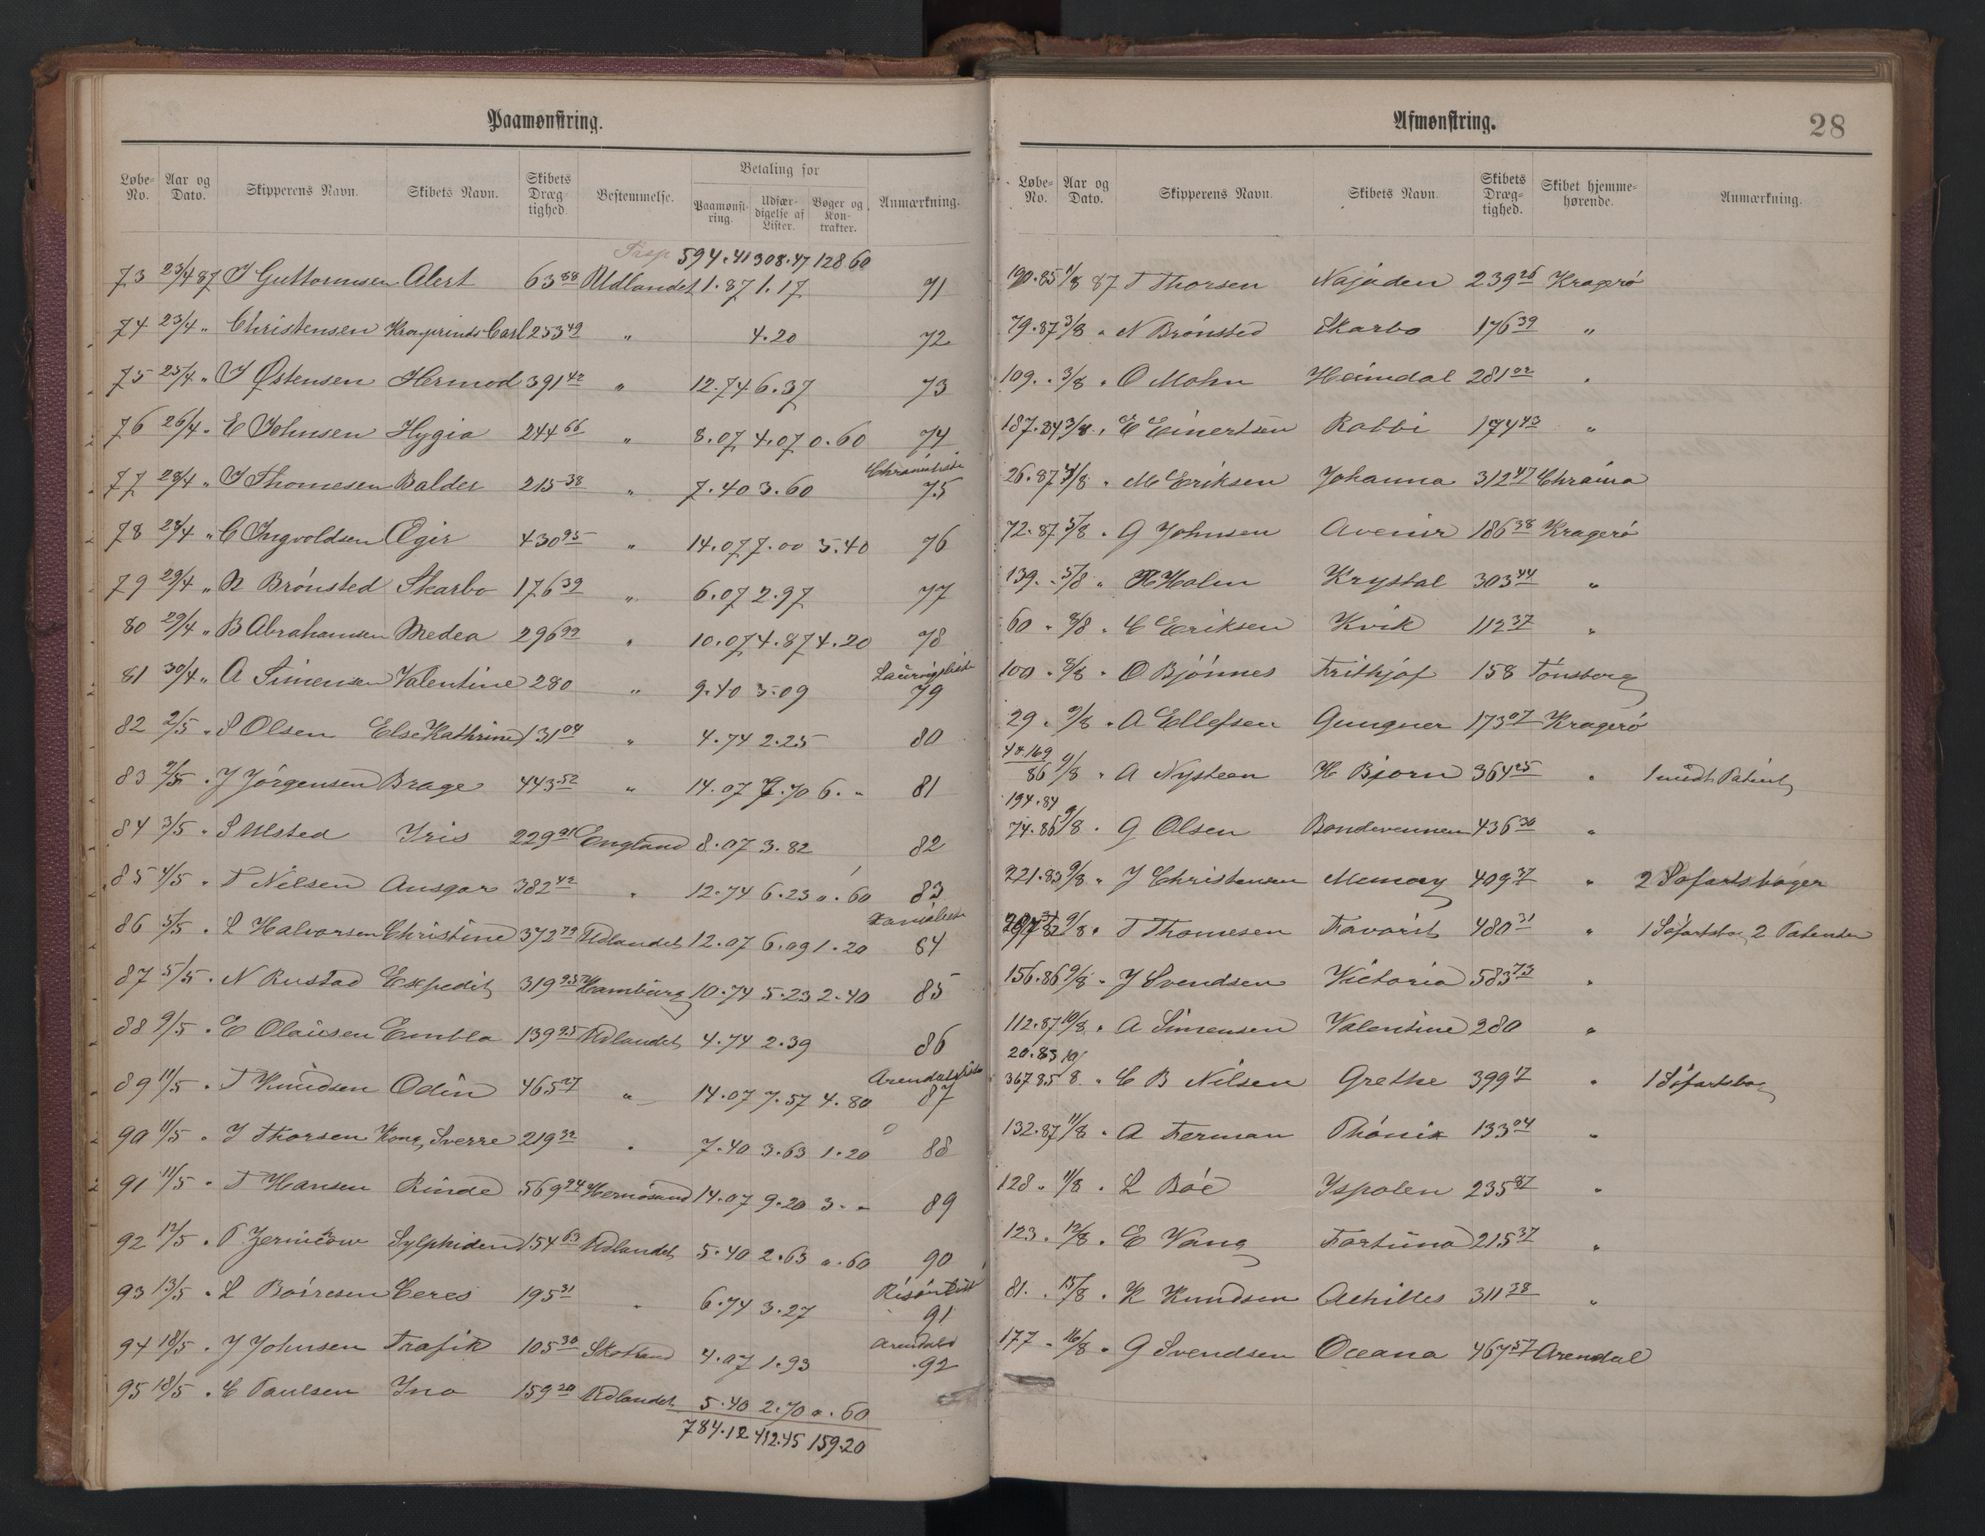 Paamønstring.
Løbe-No. Aar og Dato. Skipperens Navn. Skibets Navn. Skibets Dræg-tighed. Bestemmelse. Betaling for Paamønst-ring. Udfær-digelse af Lister. Bøger og Kon-trakter. Anmærkning.
594.41 308.47 128 60
73 23/4 87 Guttormsen Alert 63 88 Udlandet 1.87 1.17 71
74 23/4 " Christensen Kronprinds Carl 253 49 " 4.20 72
75 25/4 " Østensen Hermod 391 42 " 12.74 6.37 73
76 26/4 " E Johnsen Hygia 244 66 " 8.07 4.07 0.60 74
77 28/4 " Thomesen Balder 215 38 " 7.40 3.60 75
78 28/4 " C Ingvoldsen Ægir 430 95 " 14.07 7.00 5.40 76
79 29/4 " N Brønsted Skarbo 176 39 " 6.07 2.97 77
80 29/4 " B Abrahamsen Medea 296 99 " 10.07 4.87 4.20 78
81 30/4 " A Simensen Valentine 280 " 9.40 3.09 79
82 2/5 " S Olsen Else Kathrine 131 04 " 4.74 2.25 80
83 2/5 " J Jörgensen Brage 443 52 " 14.07 7.70 6. " 81
84 3/5 " S Ulsted Iris 229 91 England 8.07 3.82 82
85 4/5 " T Nilsen Ansgar 382 42 " 12.74 6.23 0.60 83
86 5/5 " L Halvorsen Christine 372 79 Udlandet 12.07 6.09 1.20 84
87 5/5 " N Rustad Expedit 319 95 Hamburg 10.74 5.23 2.40 85
88 9/5 " E Olaüsen Embla 139 95 Udlandet 4.74 2.39 86
89 11/5 " T Knüdsen Odin 465 27 " 14.07 7.57 4.80 87
90 11/5 " J Thorsen Kong Sverre 219 32 " 7.40 3.63 1.20 88
91 11/5 " T Hansen Rinde 569 94 Hernösand 14.07 9.20 3. " 89
92 12/5 " Sylphiden 154 63 Udlandet 5.40 2.63 0.60 90
93 13/5 " L Ceres 195 31 " 6.74 3.27 91
94 18/5 " J Johnsen Trafik 105 30 Skotland 4.07 1.93 Arendals 92
95 18/5 " C Paulsen Ino 159 20 Udlandet 5.40 2.70 0.60
784.12 412.45 159.20
Afmønstring.
28
Løbe-No. Aar og Dato. Skipperens Navn. Skibets Navn. Skibets Dræg-tighed. Skibet hjemme-hørende. Anmærkning.
190.85 1/8 87 T Thorsen Najaden 239 26 Kragerø
79.87 3/8 " N Brønsted Skarbo 176 39 "
109. " 3/8 " O Mohn Heimdal 281 22 "
187.84 3/8 " E Einertsen Rabbi 174 43 "
26.87 4/8 " M Eriksen Johanna 312 47 Chrania
72.87 5/8 " G Johnsen Avenir 186 38 Kragerø
139. " 5/8 " H Holm Krystal 303 44 "
60 " 8/8 " C Eriksen Kvik 112 37 "
100 " 8/8 " O Bjónnes Frithjof 158 Tönsberg
29 " 9/8 " A Ellefsen Gungner 173 07 Kragerö
169
86 9/8 " A Nysteen H Bjorn 364 25 " 1 Patent
194.84
74.86 9/8 " G Olsen Bondevennen 436 30 "
221.83 9/8 " J Christensen Memory 409 37 " 2 Söfartsböger
9/8 " T Thomesen Favorit 480 31 " 1 Söfartsbog 2 Patenter
156.86 9/8 " J Svendsen Victoria 583 73 "
112.87 10/8 " A Simensen Valentine 280 "
20.83
367 85 10/8 " C B Nilsen Grethe 399 7 " 1 Söfartsbog
132.87 11/8 " A Ferman Phönix 133 04 "
128 " 11/8 " L Böe Ispolen 235 87 "
123 " 12/8 " E Vang Fortuna 215 37 "
81. " 15/8 " K Knudsen Achilles 311 38 "
177 " 16/8 " G Svendsen Oceana 467 57 Arendal